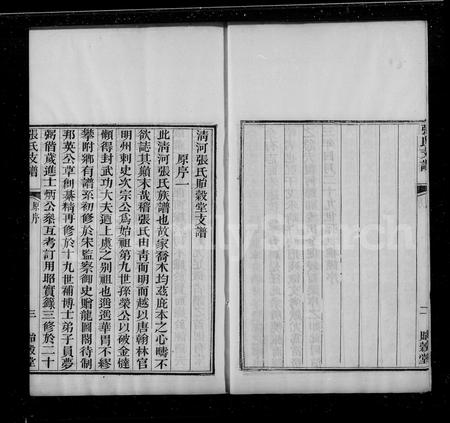 清河張氏貽穀堂支譜
原序一
此清河張氏族譜也故家喬木均蔭庇本之心疇不
欲誌其巔末哉稽張氏由青而明而越以唐翰林官
明州刺史次宗公為始祖第九世孫榮公以破金健
懶得封武功大夫迺上虞之別祖也遞遞華胄不繆
攀附鄉有譜系初修於宋監察御史贈龍圖閣待制
邦英公草創纂精再修於十九世補博士弟子員夢
弼偕歲進士炳公叅互考訂用昭實錄三修於二十
張氏支譜
原序
三
貽穀堂
張氏支譜
二
貽穀堂